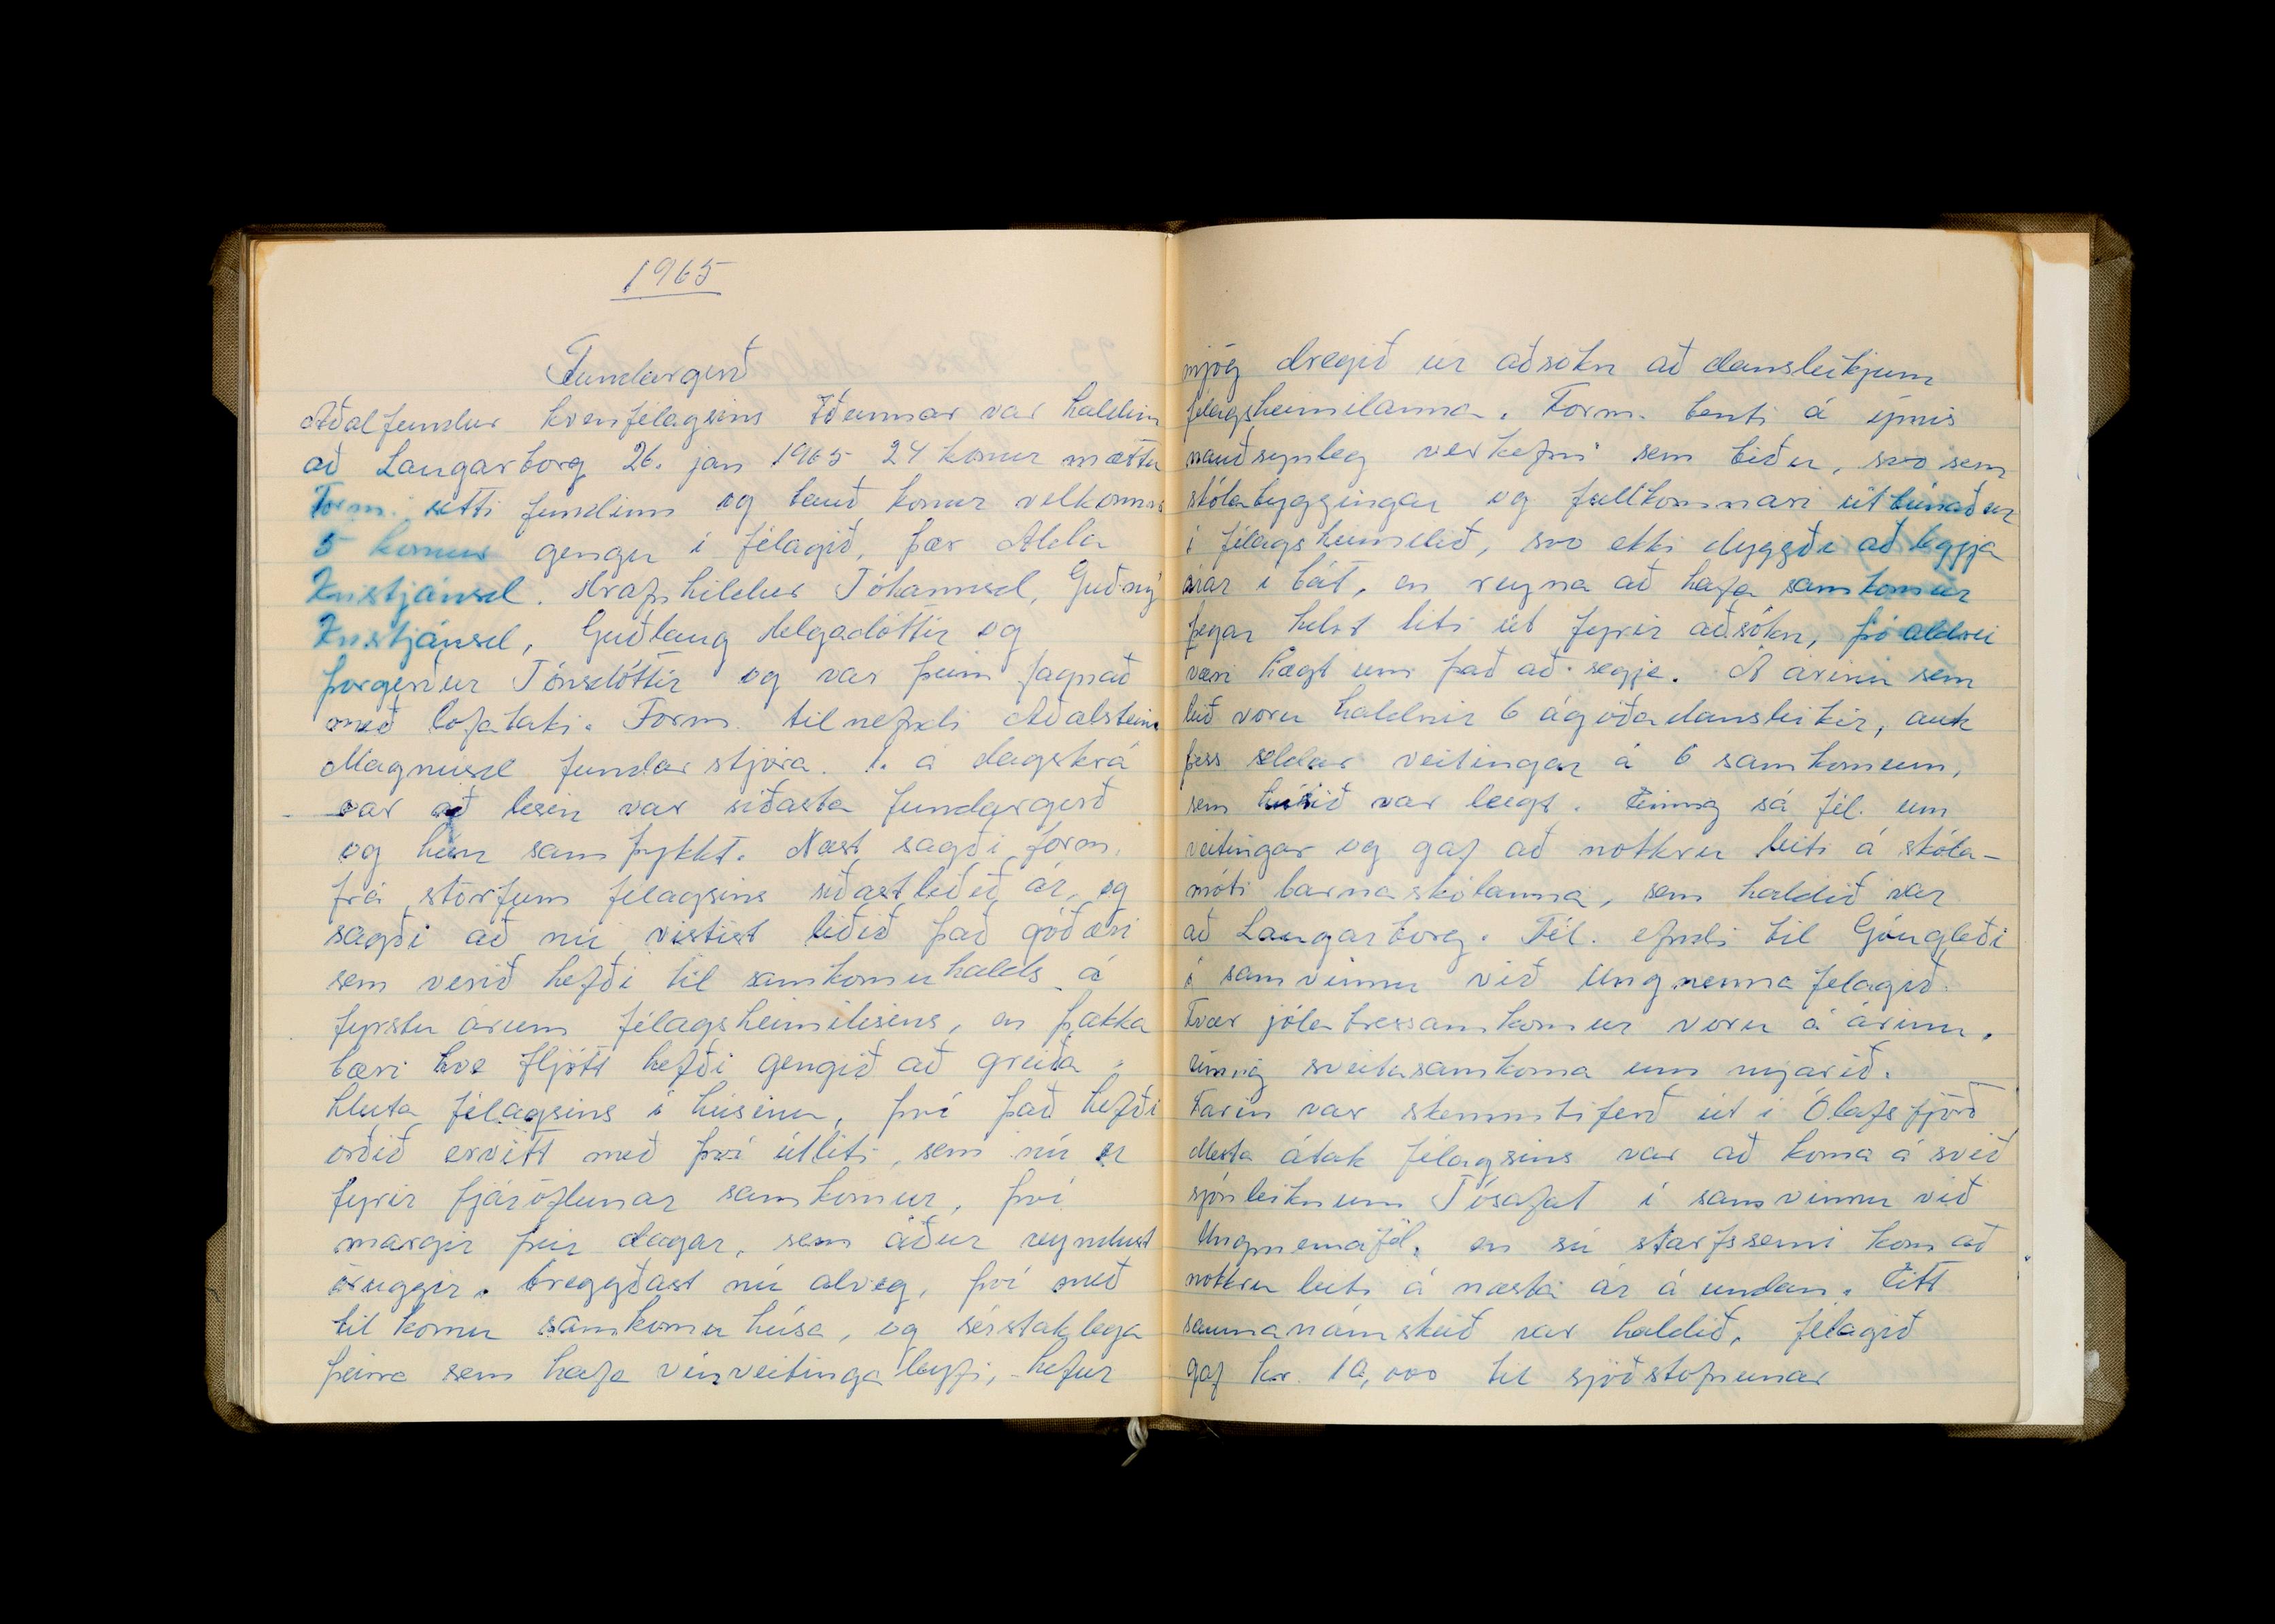 1965
Fundargerð
Aðalfundur kvenfélagsins Iðunnar var haldin
að Laugarborg 26. jan 1965 24 konur mættu
Form. setti fundinn og bauð konur velkomna
5 konur gengu í félagið, þær Alda
Kristjánsd. Hrafnhildur Jóhannsd, Guðný
Kristjánsd, Guðlaug Helgadóttir og
Þorgerður Jónsdóttir og var þeim fagnað
með lófataki. Form. tilnefndi Aðalsteinu
Magnúsd fundarstjóra. 1. á dagskrá
var að lesin var síðasta fundargerð
og hún samþykkt. Næst sagði form.
frá störfum félagsins síðastliðið ár, og
sagði að nú virtist liðið það góðæri
sem verið hefði til samkomuhalds á
fyrstu árum félagsheimilisins, en þakka
bæri hve fljótt hefði gengið að greiða
hluta félagsins í húsinu, því það hefði
orðið ervitt með því útliti, sem nú er
fyrir fjáröflunar samkomur, því
margir þeir dagar, sem áður reyndust
öruggir. bregðast nú alveg, því með
til komu samkomuhúsa, og sérstaklega
þeirra sem hafa vínveitingaleyfi, hefur
mjög dregið úr aðsókn að dansleikjum
félagsheimilanna. Form. benti á ýmis
nauðsynleg verkefni sem biðu, svo sem
skólabyggingar og fullkomnari útbúnaður
í félagsheimilið, svo ekki dyggði að leggja
árar í bát, en reyna að hafa samkomur
þegar helst liti út fyrir aðsókn, þó aldrei
væri hægt um það að segja. Á árinu sem
leið voru haldnir 6 ágóðadansleikir, auk
þess seldar veitingar á 6 samkomum,
sem húsið var leigt. Einnig sá fél. um
veitingar og gaf að notkru leiti á skóla-
móti barnaskólanna, sem haldið var
að Laugarborg. Fél. efndi til Góugleði
í samvinnu við Ungmennafélagið.
Tvær jólatressamkomur voru á árinu,
einnig sveitasamkoma um nýarið.
Farin var skemmtiferð út í Ólafsfjörð
Mesta átak félagsins var að koma á svið
sjónleiknum Jósafat í samvinnu við
Ungmennafél. en sú starfssemi kom að
notkru leiti á næsta ár á undan. Eitt
saumanámskeið var haldið, félagið
gaf kr. 10,000 til sjóðstofnunar